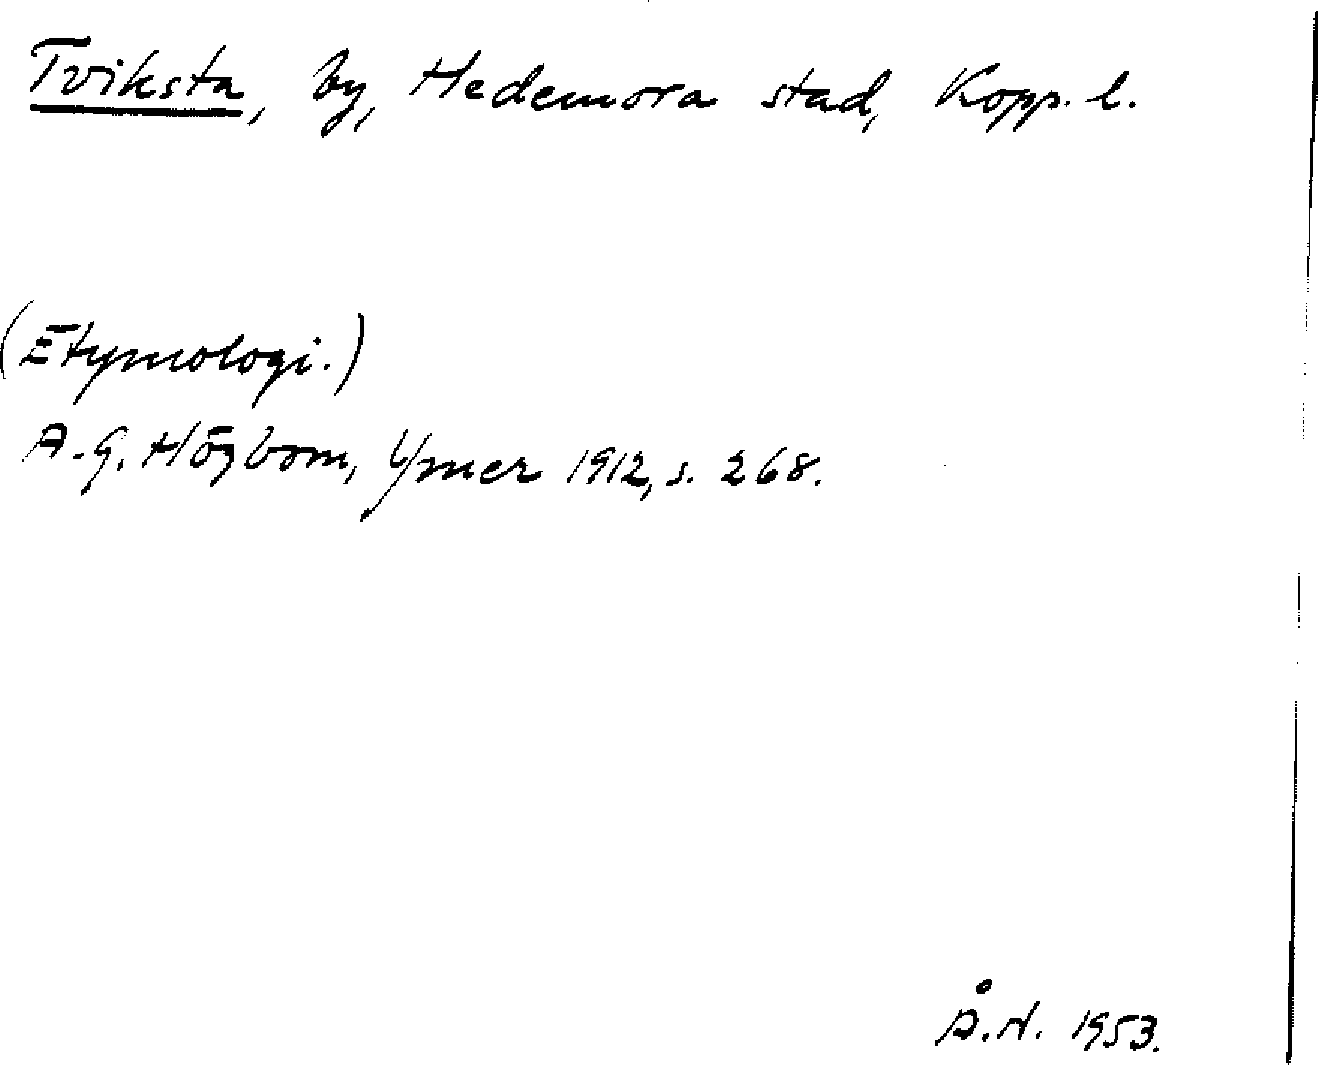 Tviksta, by, Hedemora stad, Kopp. l.
(Etymologi.)
A.G. Högbom, Ymer 1912, s. 268.
Å.N. 1953.